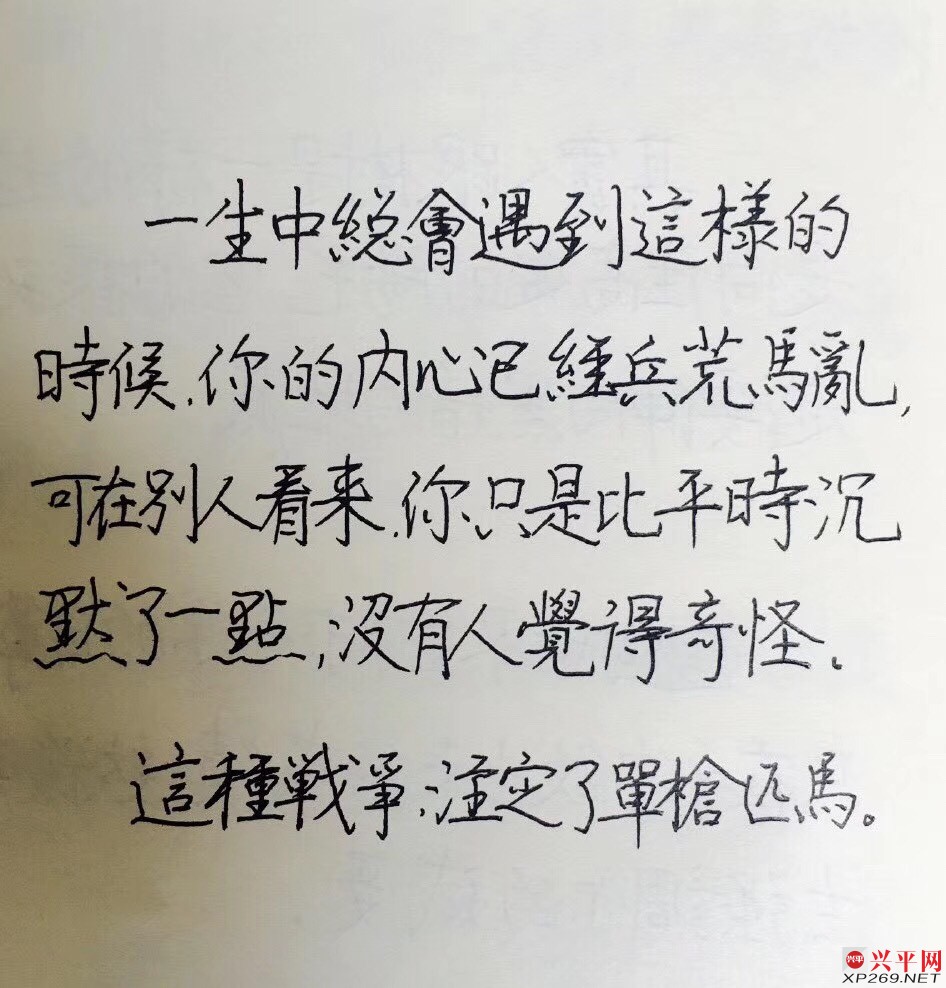 一生中総會遇到這樣的
時候,你的内心已經兵荒馬亂,
可在別人看来,你只是比平時沉
默了一點,沒有人覺得奇怪。
這種戦爭,注定了單槍匹馬。
兴平 兴平网
XP269.NET